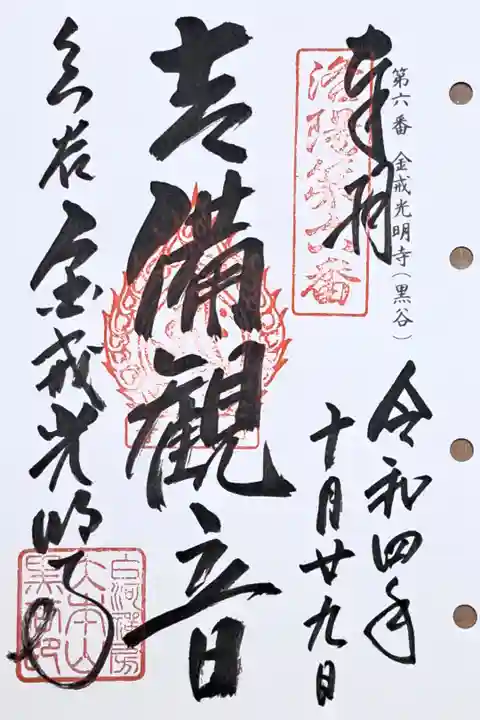 第六番 金戒光明寺(黒谷)
奉拝
洛陽第六番
令和四年
十月廿九日
吉備観音
黒谷 金戒光明寺
白河禅房
大本山
黒谷印